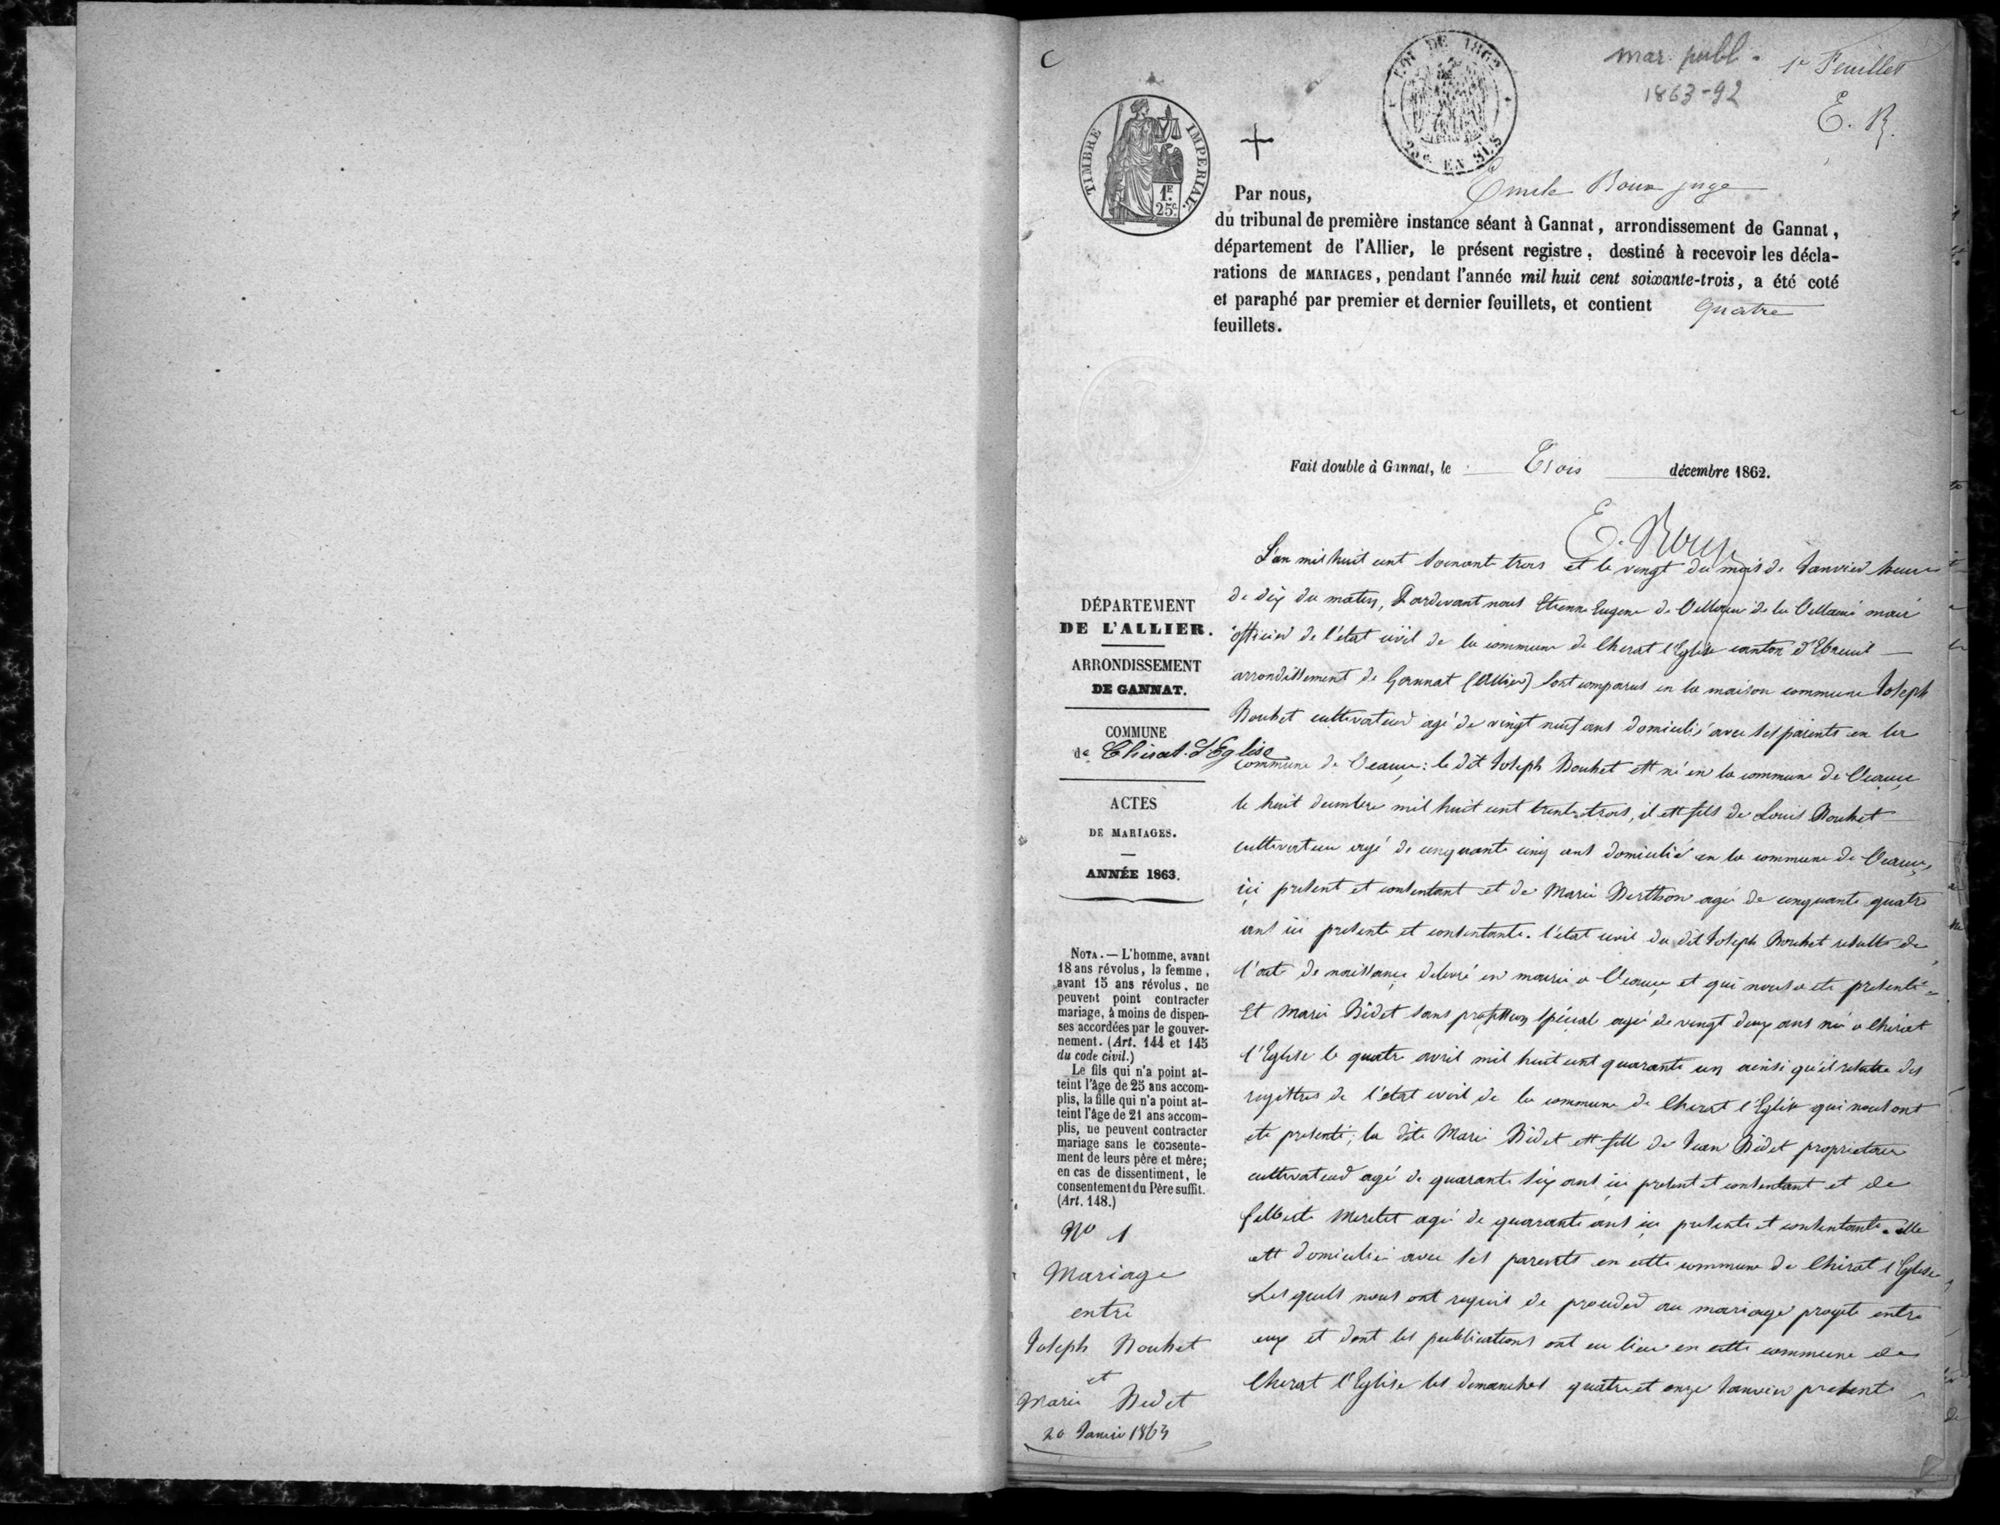 C
mar. publ.
1863-92
1er Feuillet
E. R.
LOI DE 1862
25c. EN SUS
TIMBRE IMPERIAL.
1F.
25c.
Par nous, Emile Roux juge
du tribunal de première instance séant à Gannat, arrondissement de Gannat,
département de l'Allier, le présent registre, destiné à recevoir les décla-
rations de MARIAGES, pendant l'année mil huit cent soixante-trois, a été coté
et paraphé par premier et dernier feuillets, et contient quatre
feuillets.
Fait double à Gannat, le Trois décembre 1862.
E. Roux
DÉPARTEMENT
DE L'ALLIER.
ARRONDISSEMENT
DE GANNAT.
COMMUNE
de Chirat-L'Eglise
ACTES
DE MARIAGES.
ANNÉE 1863.
NOTA. — L'homme, avant
18 ans révolus, la femme,
avant 15 ans révolus, ne
peuvent point contracter
mariage, à moins de dispen-
ses accordées par le gouver-
nement. (Art. 144 et 145
du code civil.)
Le fils qui n'a point at-
teint l'âge de 25 ans accom-
plis, la fille qui n'a point at-
teint l'âge de 21 ans accom-
plis, ne peuvent contracter
mariage sans le consente-
ment de leurs père et mère;
en cas de dissentiment, le
consentement du Père suffit.
(Art. 148.)
No 1
Mariage
entre
Joseph Bouhet
et
Marie Bidet
20 Janvier 1863
L'an mil huit cent soixante trois et le vingt du mois de Janvier heure
de dix du matin, Pardevant nous Etienne Eugene de maire
officier de l'état civil de la commune de Chirat l'Eglise canton d'Ebreuil
arrondissement de Gannat (Allier) sont comparus en la maison commune Joseph
Bouhet cultivateur agé de vingt neuf ans domicilié avec ses parents en la
commune de Veauce: le dit Joseph Bouhet est né en la commune de Veauce
le huit decembre mil huit cent trente trois, il est fils de Louis Bouhet
cultivateur agé de cinquante cinq ans domicilié en la commune de Veauce,
ici présent et consentant et de Marie Berthon agé de cinquante quatre
ans ici presente et consentante. l'état civil du dit Joseph Bouhet resulte de
l'acte de naissance delivré en mairie a Veauce et qui nous a ete presenté=
Et Marie Bidet sans profession spécial agé de vingt deux ans né a Chirat
l'Eglise le quatre avril mil huit cent quarante un ainsi qu'il resulte des
registres de l'état civil de la commune de Chirat l'Eglise qui nous ont
ete presenté; la dite Marie Bidet est fille de Jean Bidet proprietaire
cultivateur agé de quarante six ans ici present et consentant et de
Gilberte agé de quarante ans ici presente et consentante. elle
est domicilié avec ses parents en cette commune de Chirat l'Eglise
Lesquels nous ont requis de proceder au mariage projeté entre
eux et dont les publications ont eu lieu en cette commune de
Chirat l'Eglise les dimanches quatre et onze Janvier present